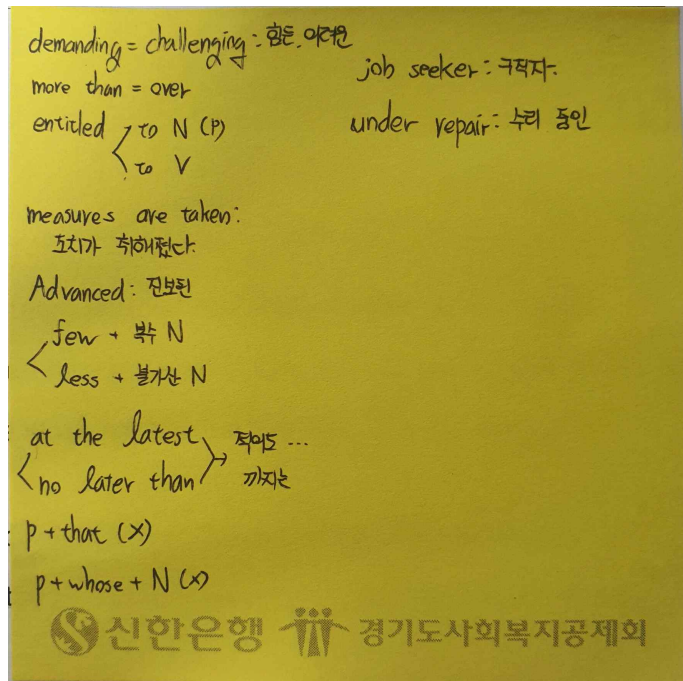 demanding = challenging : 힘든, 어려운
more than = over
entitled to N (p)
to V
measures are taken:
조치가 취해졌다.
Advanced: 진보된
few + 복수 N
less + 불가산 N
at the latest 적어도 ...
no later than 까지는
p + that (X)
p + whose + N (X)
job seeker : 구직자.
under repair: 수리 중인
신한은행 경기도사회복지공제회